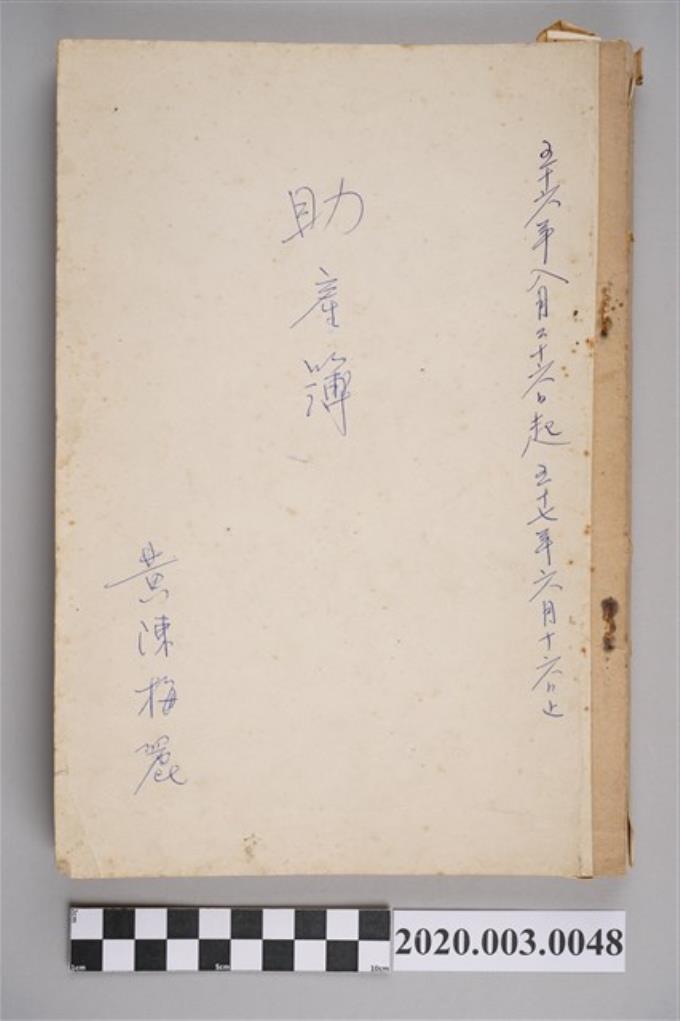 五十六年八月二十六日起五十七年六月十六日止
助產簿
黃陳梅麗
0cm
1cm
5cm
10cm
2020.003.0048